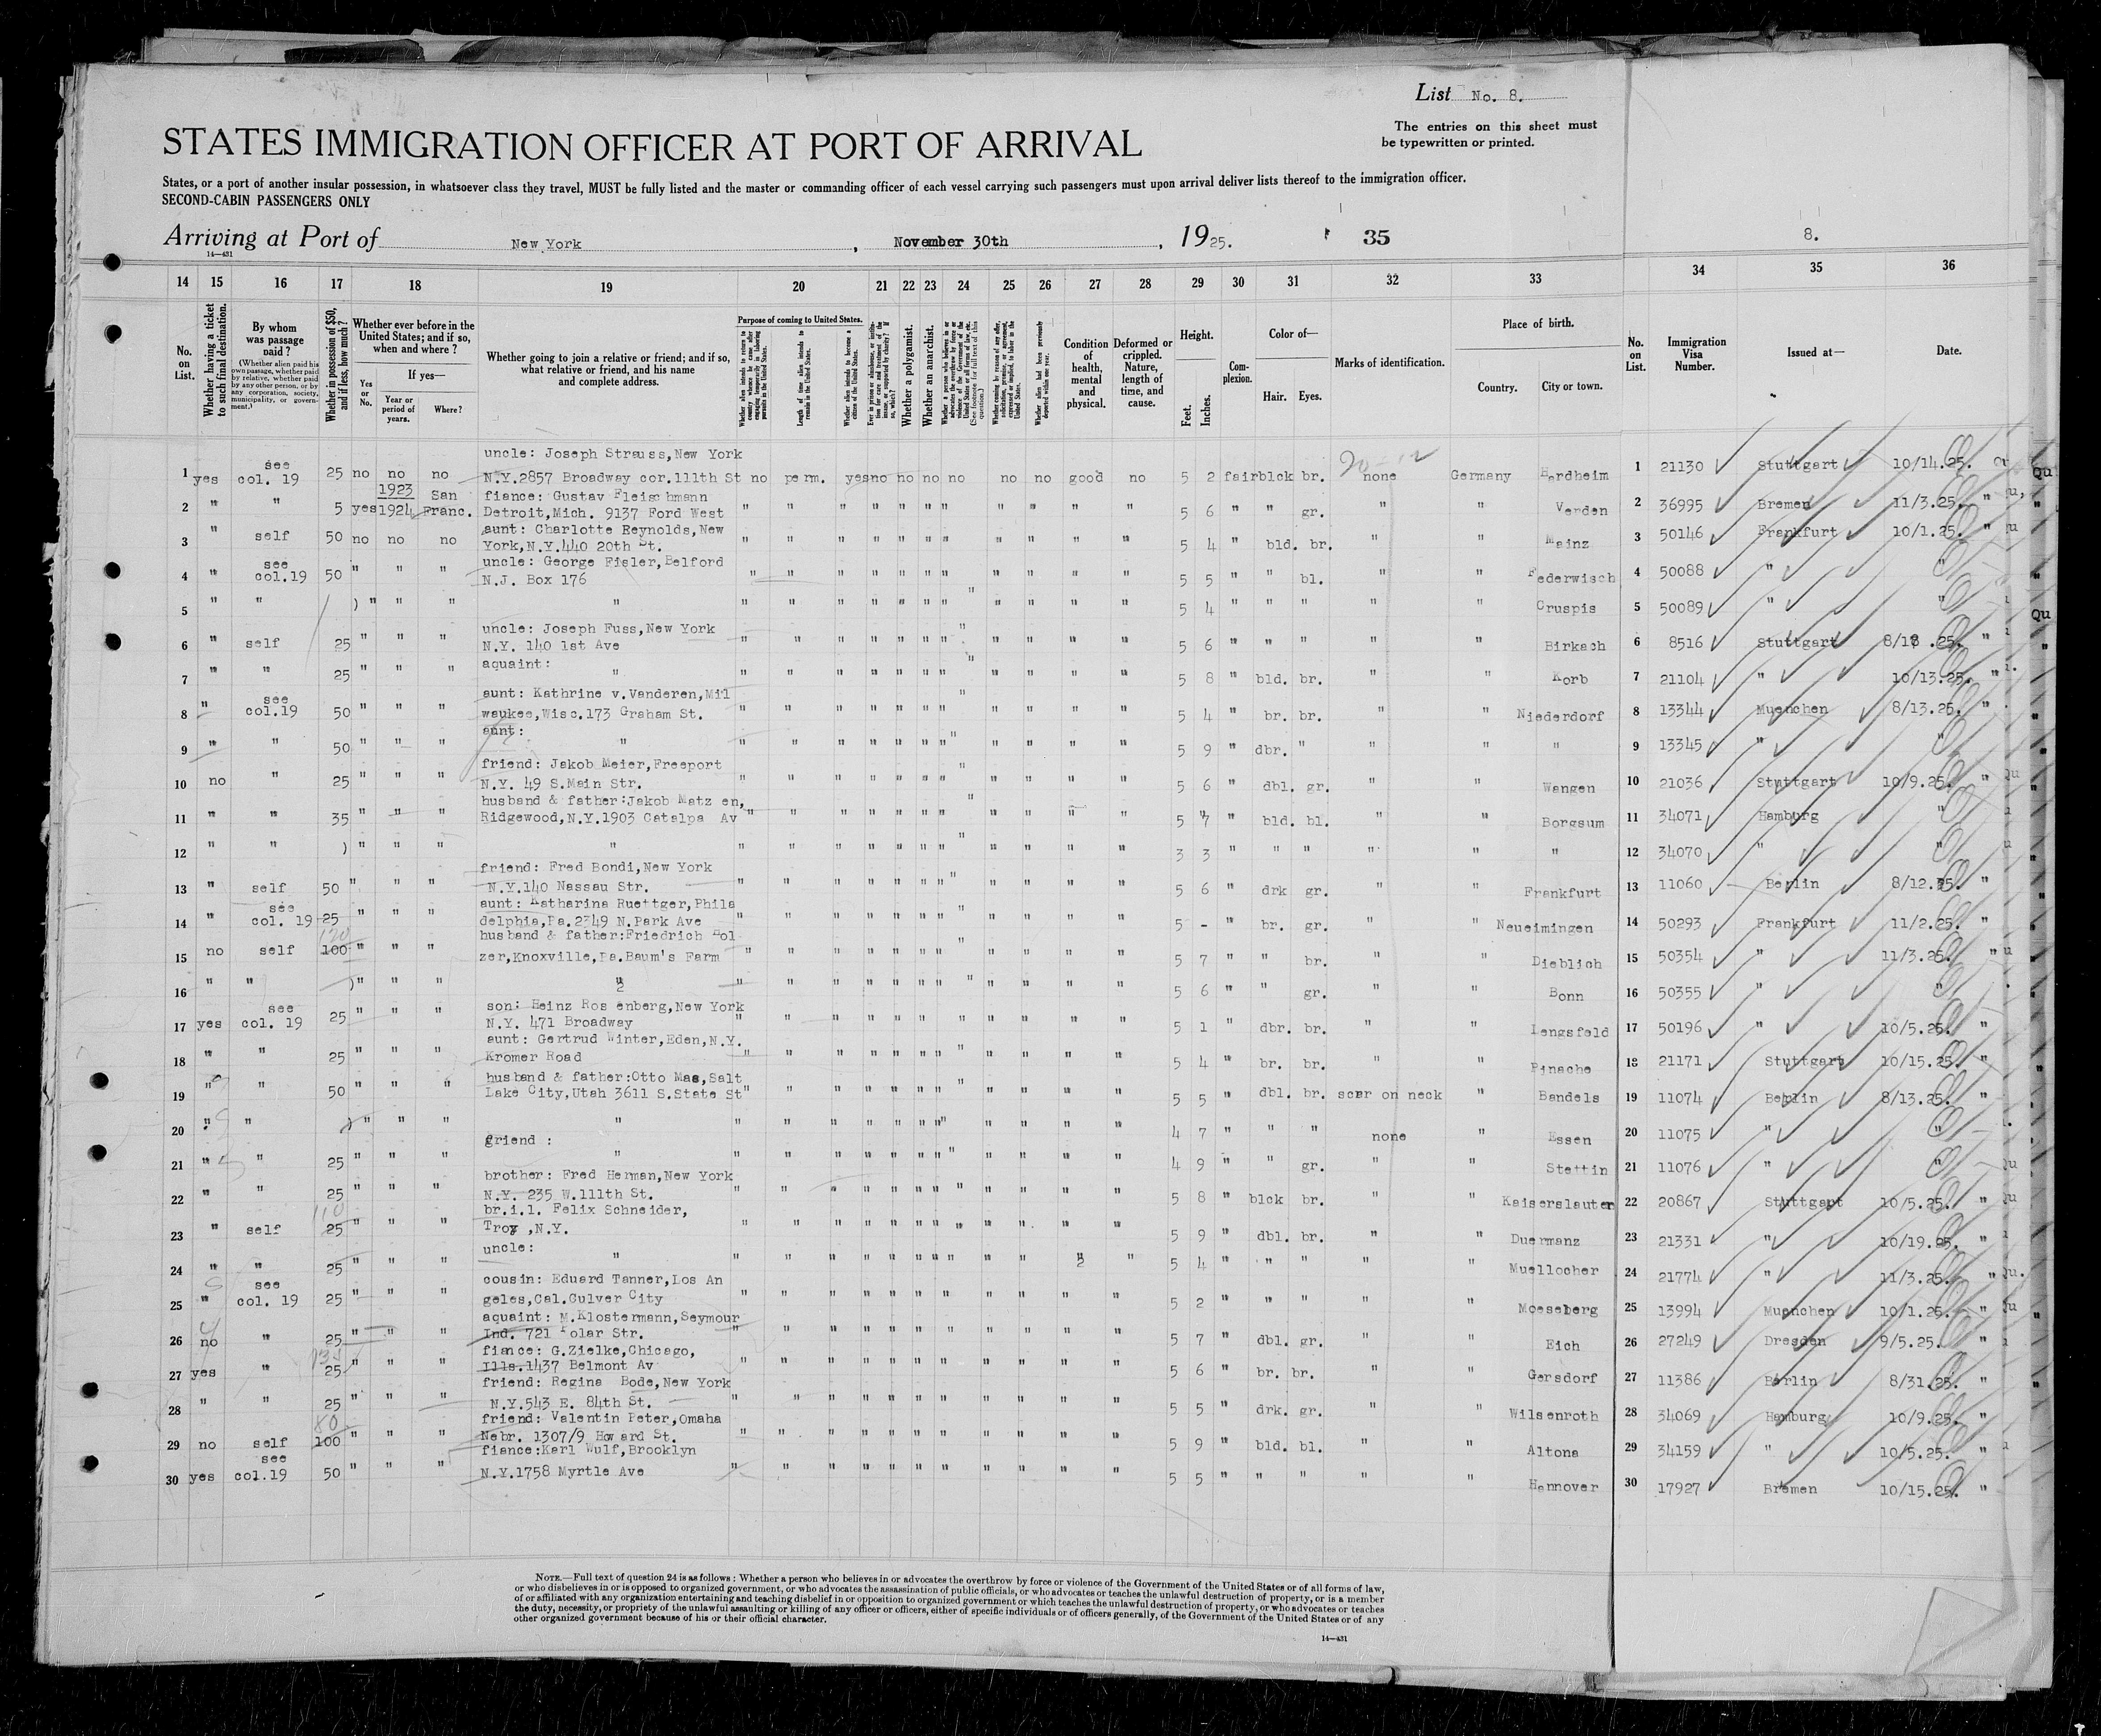 List No. 8.
The entries on this sheet must
be typewritten or printed.
STATES IMMIGRATION OFFICER AT PORT OF ARRIVAL
States, or a port of another insular possession, in whatsoever class they travel, MUST be fully listed and the master or commanding officer of each vessel carrying such passengers must upon arrival deliver lists thereof to the immigration officer.
SECOND-CABIN PASSENGERS ONLY
Arriving at Port of New York, November 30th, 1925. 35 8.
14—431
14 15 16 17 18 19 20 21 22 23 24 25 26 27 28 29 30 31 32 33 34 35 36
No. on List.
Whether having a ticket to such final destination.
By whom was passage paid?
(Whether alien paid his own passage, whether paid by relative, whether paid by any other person, or by any corporation, society, municipality, or government.)
Whether in possession of $50, and if less, how much?
Whether ever before in the United States; and if so, when and where?
If yes—
Yes or No.
Year or period of years.
Where?
Whether going to join a relative or friend; and if so, what relative or friend, and his name and complete address.
Purpose of coming to United States.
Length of time alien intends to remain in the United States.
Whether alien intends to become a citizen of the United States.
Whether a polygamist.
Whether an anarchist.
Condition of health, mental and physical.
Deformed or crippled. Nature, length of time, and cause.
Height.
Feet. Inches.
Complexion.
Color of—
Hair. Eyes.
Marks of identification.
Place of birth.
Country. City or town.
No. on List.
Immigration Visa Number.
Issued at—
Date.
uncle: Joseph Strauss, New York
1 yes see col. 19 25 no no no N.Y.2857 Broadway cor.111th St no perm. yes no no no no no no good no 5 2 fair blck br. none Germany Hardheim 1 21130 Stuttgart 10/14.25. Qu
fiance: Gustav Fleischmann
2 " " 5 yes 1923 1924 San Franc. Detroit,Mich. 9137 Ford West " " " " " " " " " " " 5 6 " " gr. " " Verden 2 36995 Bremen 11/3.25. "
aunt: Charlotte Reynolds, New
3 " self 50 no no no York,N.Y.440 20th St. " " " " " " " " " " " 5 4 " bld. br. " " Mainz 3 50146 Frankfurt 10/1.25. "
uncle: George Fisler,Belford
4 " see col.19 50 " " " N.J. Box 176 " " " " " " " " " " " 5 5 " " bl. " " Federwisch 4 50088 " "
5 " " ) " " " " " " " " " " " " " " " 5 4 " " " " " Cruspis 5 50089 " " Qu
uncle: Joseph Fuss,New York
6 " self 25 " " " N.Y. 140 1st Ave " " " " " " " " " " " 5 6 " " " " " Birkach 6 8516 Stuttgart 8/18.25. "
aquaint:
7 " " 25 " " " " " " " " " " " " " " " 5 8 " bld. br. " " Korb 7 21104 " 10/13.25. "
aunt: Kathrine v.Vanderen,Mil
8 " see col.19 50 " " " waukee,Wisc.173 Graham St. " " " " " " " " " " " 5 4 " br. br. " " Niederdorf 8 13344 Muenchen 8/13.25. "
aunt:
9 " " 50 " " " " " " " " " " " " " " " 5 9 " dbr. " " " " 9 13345 " "
friend: Jakob Meier,Freeport
10 no " 25 " " " N.Y. 49 S.Main Str. " " " " " " " " " " " 5 6 " dbl. gr. " " Wangen 10 21036 Stuttgart 10/9.25. "
husband & father:Jakob Matz en,
11 " " 35 " " " Ridgewood,N.Y.1903 Catalpa Av " " " " " " " " " " " 5 7 " bld. bl. " " Borgsum 11 34071 Hamburg "
12 " " ) " " " " " " " " " " " " " " " 3 3 " " " " " " 12 34070 " "
friend: Fred Bondi,New York
13 " self 50 " " " N.Y.140 Nassau Str. " " " " " " " " " " " 5 6 " drk gr. " " Frankfurt 13 11060 Berlin 8/12.25. "
aunt: Katharina Ruettger,Phila
14 " see col. 19 25 " " " delphia,Pa.2349 N.Park Ave " " " " " " " " " " " 5 - br. gr. " Neueimingen 14 50293 Frankfurt 11/2.25. "
husband & father:Friedrich Hol-
15 no self 120 100 " " " zer,Knoxville,Pa.Baum's Farm " " " " " " " " " " " 5 7 " " br. " " Dieblich 15 50354 " 11/3.25. "
16 " " ) " " " " " " " " " " " " " " " 5 6 " " gr. " " Bonn 16 50355 " "
son: Heinz Ros enberg,New York
17 yes see col. 19 25 " " " N.Y. 471 Broadway " " " " " " " " " " " 5 1 " dbr. br. " " Lengsfeld 17 50196 " 10/5.25. "
aunt: Gertrud Winter,Eden,N.Y.
18 " " 25 " " " Kromer Road " " " " " " " " " " " 5 4 " br. br. " " Pinache 18 21171 Stuttgart 10/15.25. "
husband & father:Otto Mas,Salt
19 " " 50 " " " Lake City,Utah 3611 S.State St " " " " " " " " " " " 5 5 " dbl. br. scar on neck " Bandels 19 11074 Berlin 8/13.25. "
20 " " ) " " " " " " " " " " " " " " " 4 7 " " " none " Essen 20 11075 " "
friend :
21 " " 25 " " " " " " " " " " " " " " " 4 9 " " gr. " " Stettin 21 11076 " "
brother: Fred Herman,New York
22 " " 25 " " " N.Y. 235 W.111th St. " " " " " " " " " " " 5 8 " blck br. " " Kaiserslauter 22 20867 Stuttgart 10/5.25. "
br.i.l. Felix Schneider,
23 " self 110 25 " " " Troy ,N.Y. " " " " " " " " " " " 5 9 " dbl. br. " " Duermanz 23 21331 " 10/19.25.
uncle:
24 " " 25 " " " " " " " " " " " " " " " 5 4 " " " " " Muellocher 24 21774 " 11/3.25. " Qu.
cousin: Eduard Tanner,Los An
25 " see col. 19 25 " " " geles,Cal.Culver City " " " " " " " " " " " 5 2 " " " " " Moeseberg 25 13994 Muenchen 10/1.25. "
aquaint: M.Klostermann,Seymour
26 no " 25 " " " Ind. 721 Polar Str. " " " " " " " " " " " 5 7 " dbl. gr. " " Eich 26 27249 Dresden 9/5.25.
fiance: G.Zielke,Chicago,
27 yes " 25 " " " Ills.1437 Belmont Av " " " " " " " " " " " 5 6 " br. br. " " Gersdorf 27 11386 Berlin 8/31.25. "
friend: Regina Bode,New York
28 " " 25 " " " N.Y.543 E. 84th St. " " " " " " " " " " " 5 5 " drk. gr. " " Wilsenroth 28 34069 Hamburg 10/9.25. "
friend: Valentin Peter,Omaha
29 no self 80 100 " " " Nebr. 1307/9 How ard St. " " " " " " " " " " " 5 9 " bld. bl. " " Altona 29 34159 " 10/5.25.
fiance:Karl Wulf,Brooklyn
30 yes see col.19 50 " " " N.Y.1758 Myrtle Ave " " " " " " " " " " " 5 5 " " " " " Hannover 30 17927 Bremen 10/15.25. "
NOTE.—Full text of question 24 is as follows: Whether a person who believes in or advocates the overthrow by force or violence of the Government of the United States or of all forms of law,
or who disbelieves in or is opposed to organized government, or who advocates the assassination of public officials, or who advocates or teaches the unlawful destruction of property, or is a member
of or affiliated with any organization entertaining and teaching disbelief in or opposition to organized government or which teaches the unlawful destruction of property, or who advocates or teaches
the duty, necessity, or propriety of the unlawful assaulting or killing of any officer or officers, either of specific individuals or of officers generally, of the Government of the United States or of any
other organized government because of his or their official character.
14—431